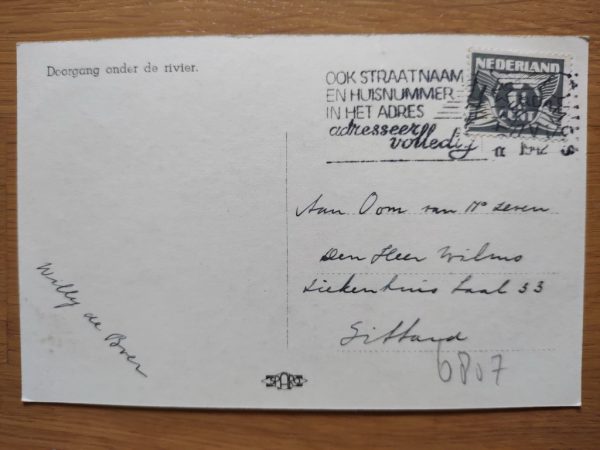 Doorgang onder de rivier.
OOK STRAATNAAM
EN HUISNUMMER
IN HET ADRES
adresseer
volledig
NEDERLAND
1942
Aan Oom van No zeven
Den Heer Wilms
Ziekenhuis Zaal 33
Sittard
6807
Willy de Boer
SPARO